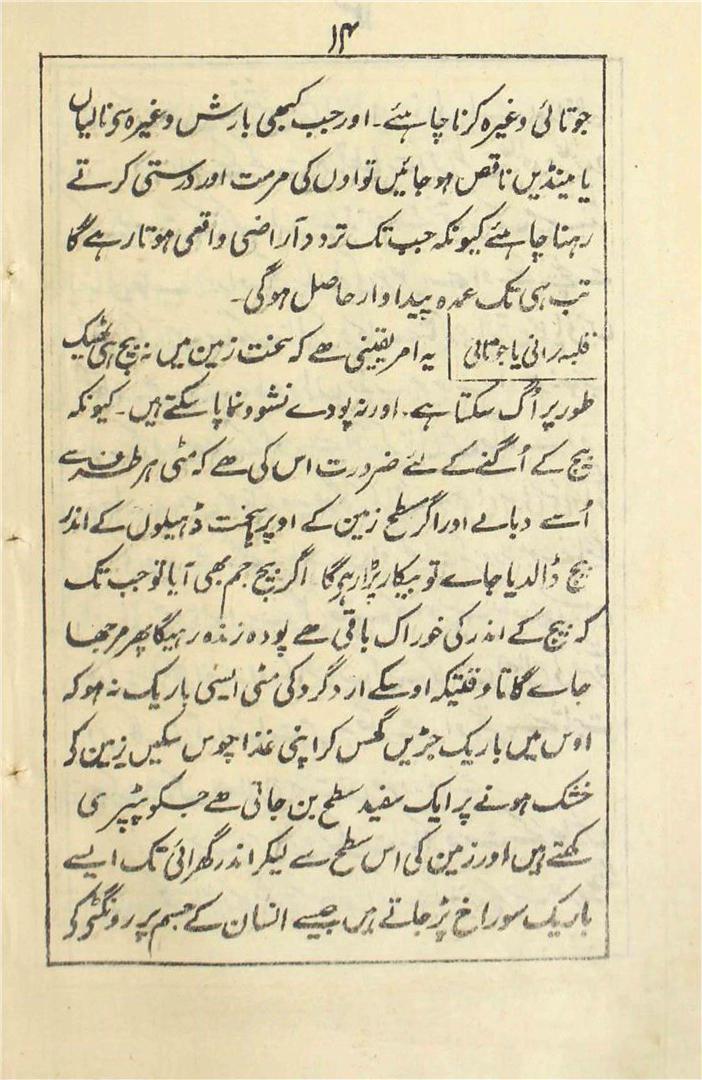 ۱۴
جوتائی وغیرہ کرنا چاہئے۔ اور جب کبھی بارش وغیرہ سی نالیاں
یا مینڈیں ناقص ہو جائیں تو اون کی مرمت اور درستی کرتے
رہنا چاہئے کیونکہ جب تک تردد آراضی واقعی ہوتا رہے گا
تب ہی تک عمدہ پیداوار حاصل ہوگی۔
قلبہ رانی یا جوتائی یہ امر یقینی ھے کہ سخت زمین میں نہ بیج ہی ٹھیک
طور پر اُگ سکتا ہے۔ اور نہ پودے نشوونما پا سکتے ہیں۔ کیونکہ
بیج کے اُگنے کے لئے ضرورت اس کی ھے کہ مٹی ہر طرف سے
اُسے دبالے اور اگر سطح زمین کے اوپر سخت ڈہیلوں کے اندر
بیج ڈالدیا جاے تو بیکار پڑا رہیگا اگر بیج جم بھی آیا تو جب تک
کہ بیج کے اندر کی خوراک باقی ھے پودہ زندہ رہیگا پھر مرجھا
جاے گا تاوقتیکہ اوسکے ارد گرد کی مٹی ایسی باریک نہ ہو کہ
اوس میں باریک جڑیں گھس کر اپنی غذا چوس سکیں زمین کے
خشک ہونے پر ایک سفید سطح بن جاتی ھے جسکو پپڑی
کہتے ہیں اور زمین کی اس سطح سے لیکر اندر گھرائی تک ایسے
باریک سوراخ پڑ جاتے ہیں جیسے انسان کے جسم پر رونگٹوں کے